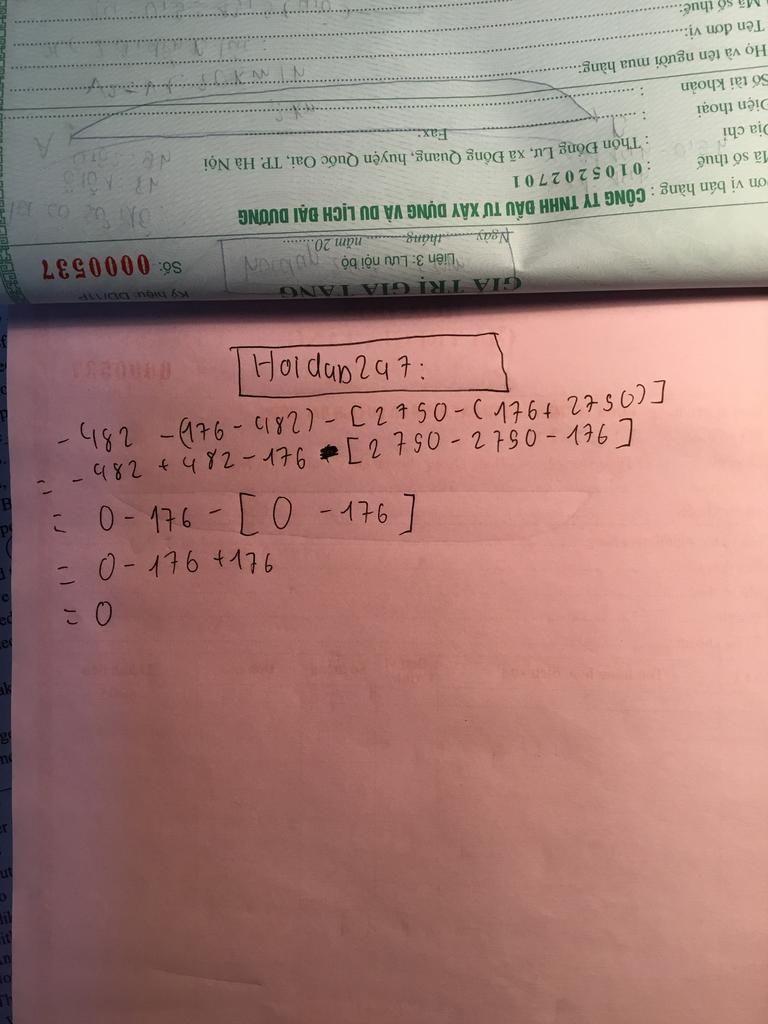 Mã số thuế:
Tên đơn vị:
Họ và tên người mua hàng:
Số tài khoản :
Điện thoại : Fax:
Địa chỉ : Thôn Đồng Lư, xã Đồng Quang, huyện Quốc Oai, TP. Hà Nội
Mã số thuế : 0105202701
ơn vị bán hàng : CÔNG TY TNHH ĐẦU TƯ XÂY DỰNG VÀ DU LỊCH ĐẠI DƯƠNG
Ngày tháng năm 20
Liên 3: Lưu nội bộ
Số: 0000537
GIÁ TRỊ GIA TĂNG
Ký hiệu: DD/11P
Hoidap247:
- 482 - (176 - 482) - [2750 - (176 + 2750)]
= - 482 + 482 - 176 - [2750 - 2750 - 176]
= 0 - 176 - [0 - 176]
= 0 - 176 + 176
= 0